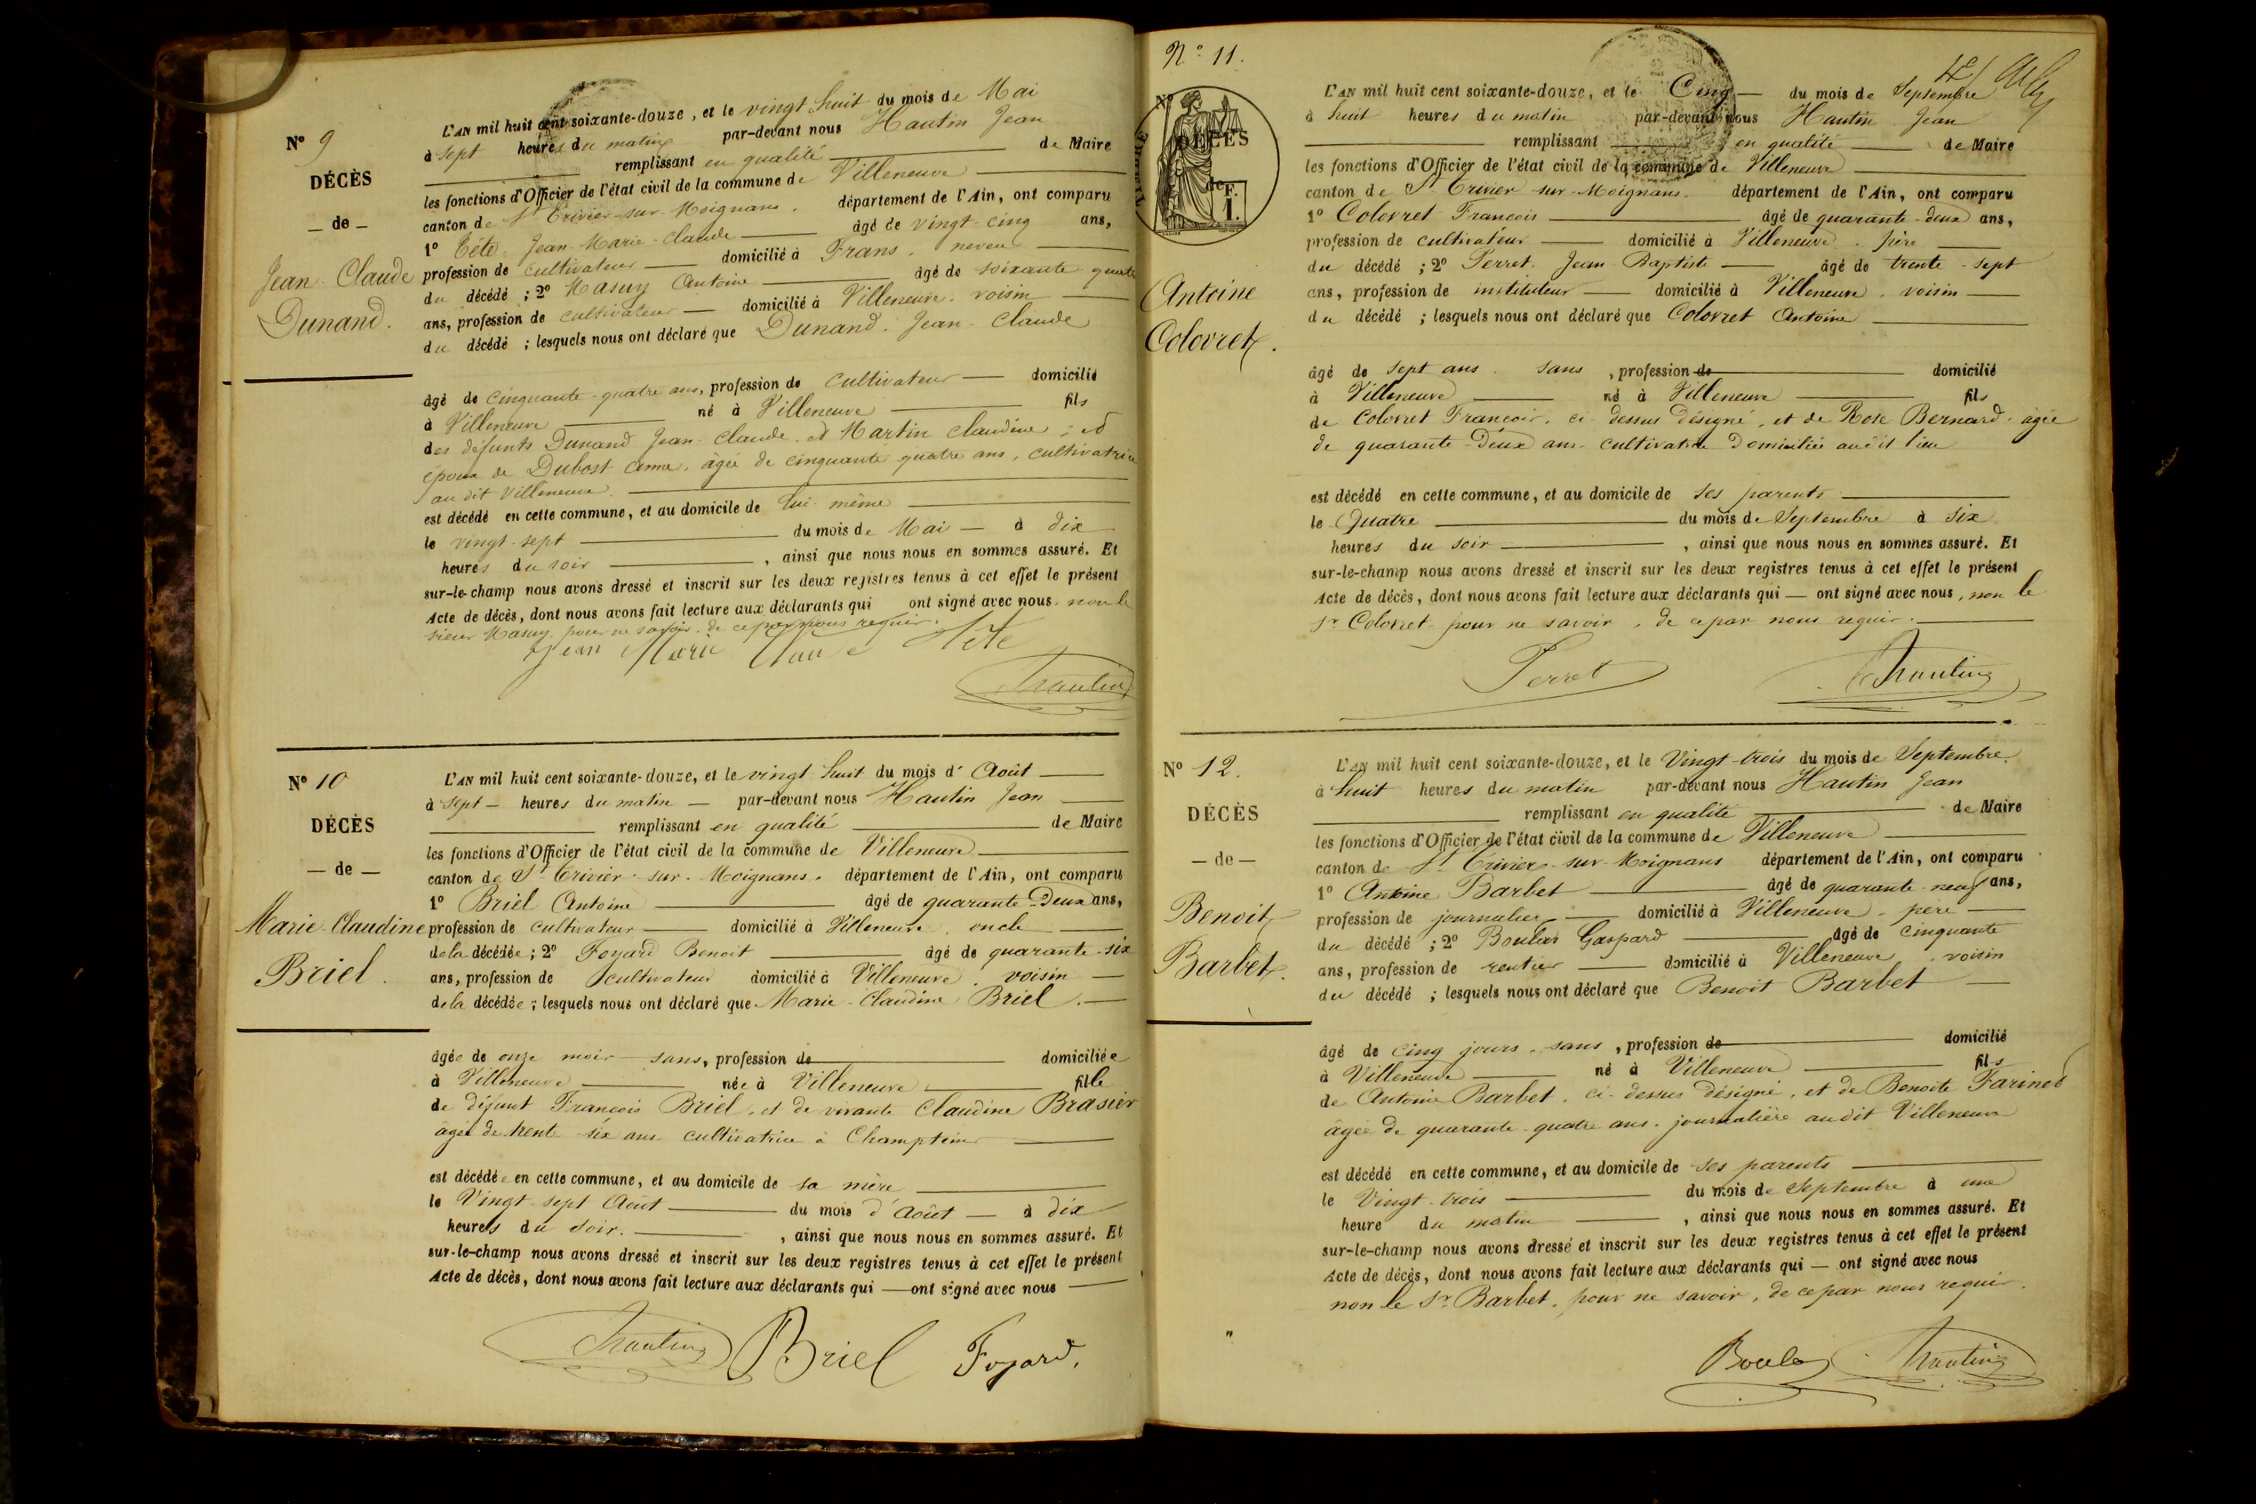 Nº 9
DÉCÈS
— de —
Jean-Claude
Dunand.
L'AN mil huit cent soixante-douze, et le vingt huit du mois de Mai
à sept heures du matin par-devant nous Hautin Jean
remplissant en qualité de Maire
les fonctions d'Officier de l'état civil de la commune de Villeneuve
canton de St Trivier-sur-Moignans. département de l'Ain, ont comparu
1º Tête Jean-Marie-Claude âgé de vingt-cinq ans,
profession de cultivateur domicilié à Frans. neveu
du décédé ; 2º Masuy Antoine âgé de soixante quatre
ans, profession de cultivateur domicilié à Villeneuve. voisin
du décédé ; lesquels nous ont déclaré que Dunand. Jean-Claude
âgé de cinquante-quatre ans, profession de cultivateur domicilié
à Villeneuve né à Villeneuve fils
des défunts Dunand Jean-Claude et Martin Claudine ; et
époux de Dubost âgée de cinquante quatre ans, cultivatrice
au dit Villeneuve.
est décédé en cette commune, et au domicile de lui-même
le vingt-sept du mois de Mai à dix
heures du soir, ainsi que nous nous en sommes assuré. Et
sur-le-champ nous avons dressé et inscrit sur les deux registres tenus à cet effet le présent
Acte de décès, dont nous avons fait lecture aux déclarants qui ont signé avec nous. non le
sieur Masuy pour ne savoir. de ce par nous requis.
Jean Marie Claude Tete
Hautin
Nº 10
DÉCÈS
— de —
Marie-Claudine
Briel.
L'AN mil huit cent soixante-douze, et le vingt huit du mois d'Août
à sept heures du matin par-devant nous Hautin Jean
remplissant en qualité de Maire
les fonctions d'Officier de l'état civil de la commune de Villeneuve
canton de St Trivier-sur-Moignans. département de l'Ain, ont comparu
1º Briel Antoine âgé de quarante-Deux ans,
profession de cultivateur domicilié à Villeneuve. oncle
de la décédée ; 2º Foyard Benoit âgé de quarante-six
ans, profession de cultivateur domicilié à Villeneuve. voisin
de la décédée ; lesquels nous ont déclaré que Marie-Claudine Briel.
âgée de onze mois sans, profession de domiciliée
à Villeneuve née à Villeneuve fille
de défunt François Briel, et de vivante Claudine Brasier
âgée de trente-six ans cultivatrice à Champteins
est décédée en cette commune, et au domicile de sa mère
le Vingt-sept Août du mois d'Août à dix
heures du soir. , ainsi que nous nous en sommes assuré. Et
sur-le-champ nous avons dressé et inscrit sur les deux registres tenus à cet effet le présent
Acte de décès, dont nous avons fait lecture aux déclarants qui ont signé avec nous
Hautin Briel Foyard.
Nº 11.
Nº
DÉCÈS
de
F.
1.
Antoine
Colovret.
L'AN mil huit cent soixante-douze, et le Cinq du mois de Septembre
à huit heures du matin par-devant nous Hautin Jean
remplissant en qualité de Maire
les fonctions d'Officier de l'état civil de la commune de Villeneuve
canton de St Trivier-sur-Moignans. département de l'Ain, ont comparu
1º Colovret François âgé de quarante-deux ans,
profession de cultivateur domicilié à Villeneuve. père
du décédé ; 2º Perret. Jean Baptiste âgé de trente-sept
ans, profession de instituteur domicilié à Villeneuve. voisin
du décédé ; lesquels nous ont déclaré que Colovret Antoine
âgé de sept ans. sans, profession de domicilié
à Villeneuve né à Villeneuve fils
de Colovret François, ci-dessus désigné, et de Rose Bernard. âgée
de quarante-Deux ans cultivatrice Domiciliée au dit lieu
est décédé en cette commune, et au domicile de ses parents
le Quatre du mois de Septembre à six
heures du soir, ainsi que nous nous en sommes assuré. Et
sur-le-champ nous avons dressé et inscrit sur les deux registres tenus à cet effet le présent
Acte de décès, dont nous avons fait lecture aux déclarants qui — ont signé avec nous, non le
Sr Colovret pour ne savoir, de ce par nous requis.
Perret Hautin
Nº 12.
DÉCÈS
— de —
Benoit
Barbet.
L'AN mil huit cent soixante-douze, et le Vingt-trois du mois de Septembre
à huit heures du matin par-devant nous Hautin Jean
remplissant en qualité de Maire
les fonctions d'Officier de l'état civil de la commune de Villeneuve
canton de St Trivier-sur-Moignans département de l'Ain, ont comparu
1º Antoine Barbet âgé de quarante-neuf ans,
profession de journalier domicilié à Villeneuve. père
du décédé ; 2º Boulas Gaspard âgé de cinquante
ans, profession de rentier domicilié à Villeneuve. voisin
du décédé ; lesquels nous ont déclaré que Benoit Barbet
âgé de cinq jours. sans, profession de domicilié
à Villeneuve né à Villeneuve fils
de Antoine Barbet, ci-dessus désigné, et de Benoite Farinet
âgée de quarante-quatre ans. journalière au dit Villeneuve
est décédé en cette commune, et au domicile de ses parents
le Vingt-trois du mois de Septembre à une
heure du matin, ainsi que nous nous en sommes assuré. Et
sur-le-champ nous avons dressé et inscrit sur les deux registres tenus à cet effet le présent
Acte de décès, dont nous avons fait lecture aux déclarants qui — ont signé avec nous
non le Sr Barbet, pour ne savoir, de ce par nous requis.
Boulas Hautin